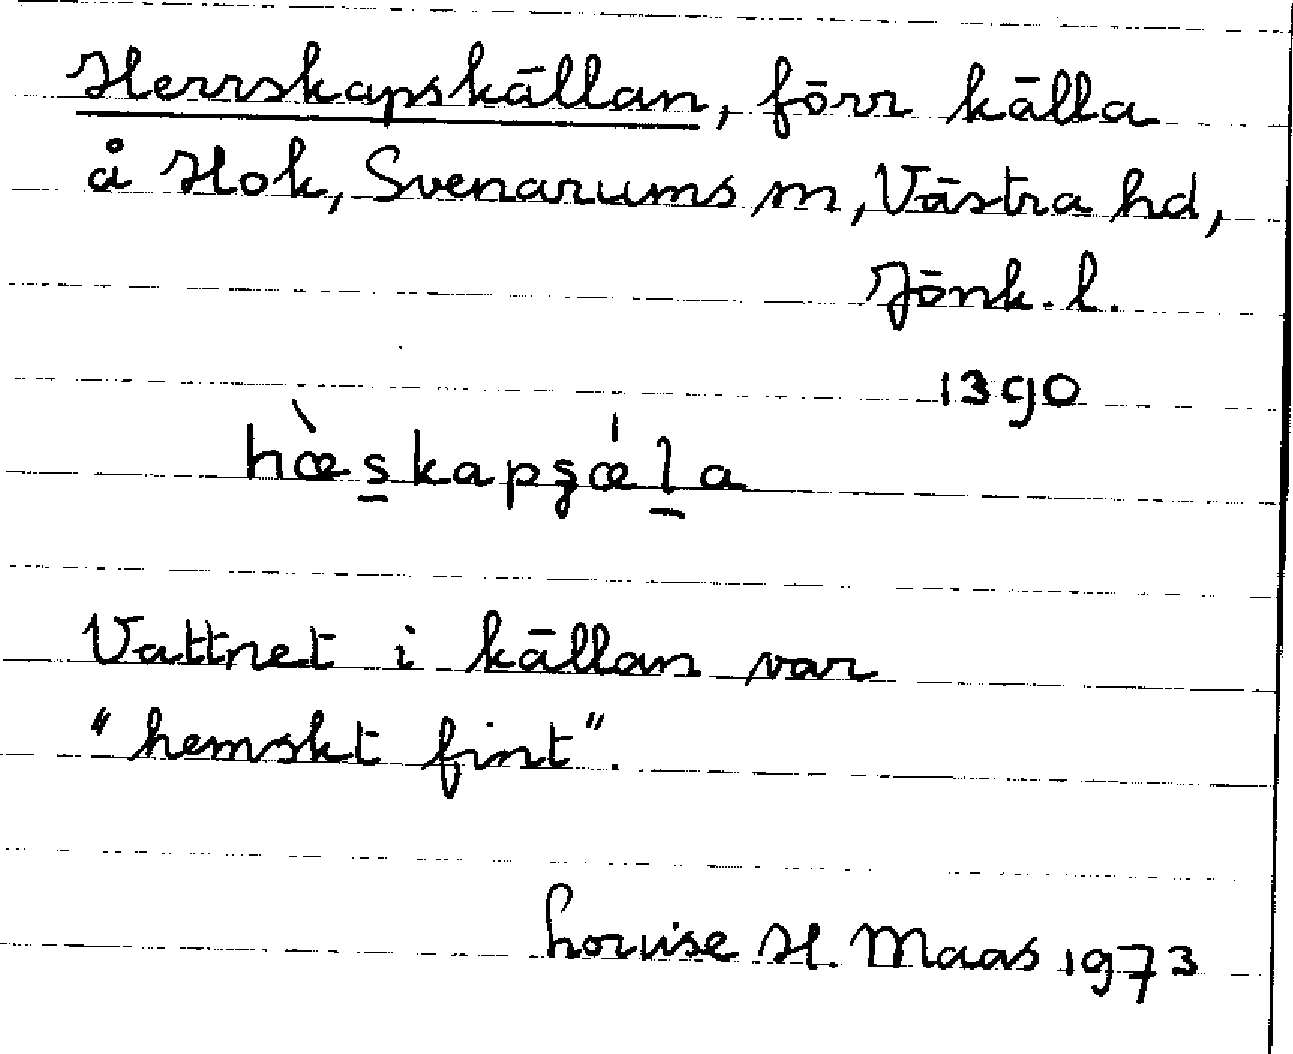 Herrskapskällan, förr källa
å Hok, Svenarums sn, Västra hd,
Jönk. l.
1390
hæ̀s̠kapʂǽl̠a
Vattnet i källan var
"hemskt fint".
Louise H. Maas 1973